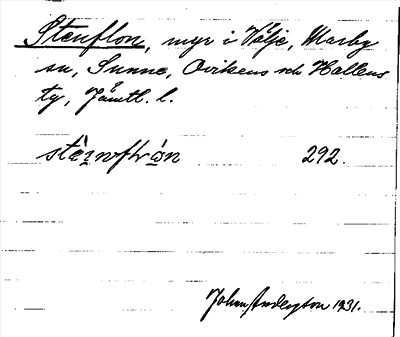 Stenflon, myr i Välje, Marby
sn, Sunne, Ovikens och Hallens
tg, Jämtl. l.
292.
Johan Anderzon 1931.